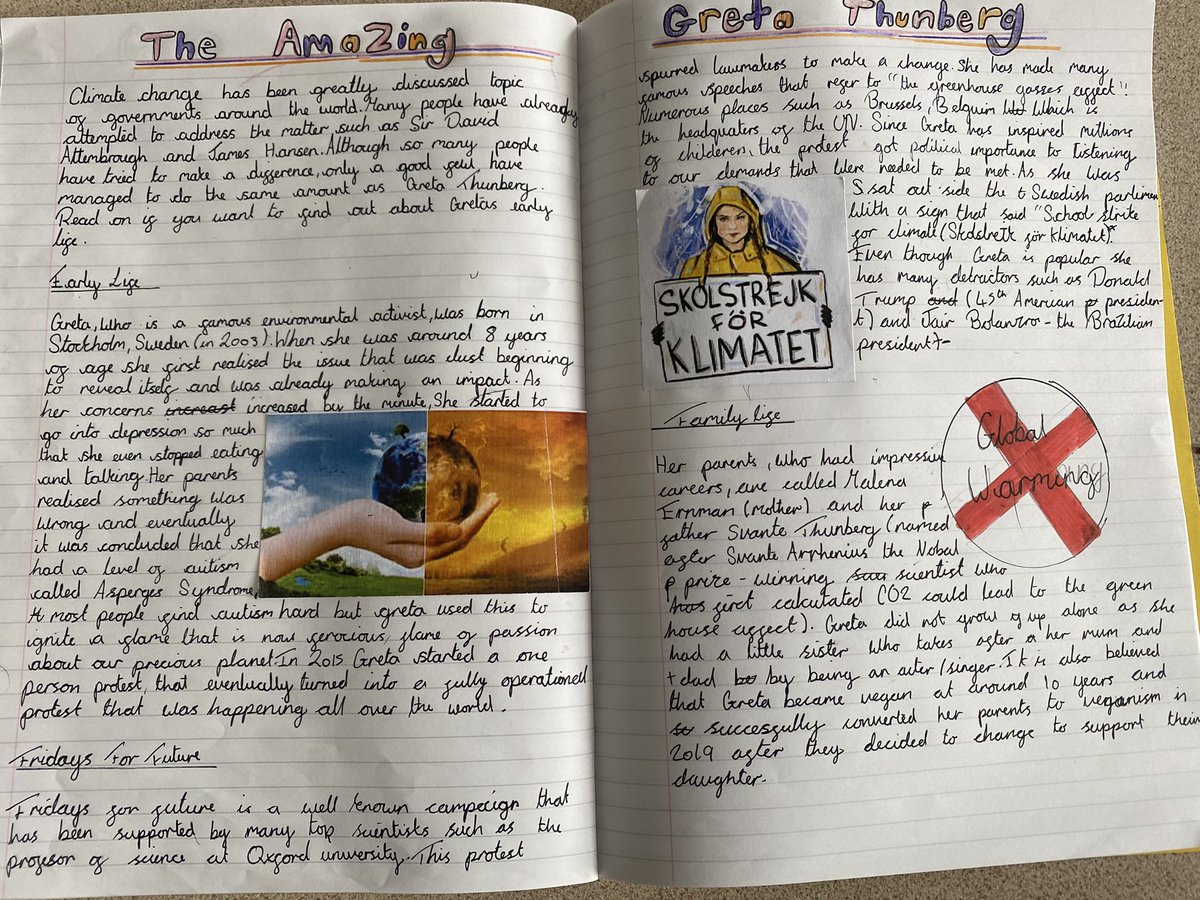 The Amazing
Climate change has been greatly discussed topic
of governments around the world. Many people have already
attempted to address the matter, such as Sir David
Attembrough and James Hansen. Although so many people
have tried to make a difference, only a good few have
managed to do the same amount as Greta Thunberg.
Read on if you want to find out about Gretas early
life.
Early Life
Greta, who is a famous environmental activist, was born in
Stockholm, Sweden (in 2003). When she was around 8 years
of age she first realised the issue that was just beginning
to reveal itself and was already making an impact. As
her concerns increast increased by the minute, She started to
go into depression so much
that she even stopped eating
and talking. Her parents
realised something was
wrong and eventually
it was concluded that she
had a level of autism
called Asperges Syndrome,
most people find autism hard but greta used this to
ignite a flame that is now ferocious, flame of passion
about our precious planet. In 2015 Greta started a one
person protest, that eventually turned into a fully operationel
protest that was happening all over the world.
Fridays For Future
Fridays for future is a well known campeign that
has been supported by many top scientists such as the
profesor of science at Oxford university. This protest
Greta Thunberg
spurred lawmakers to make a change. She has made many
famous speeches that refer to "the greenhouse gasses affect"!
Numerous places such as Brussels, Belguin Which is
the headquaters of the UN. Since Greta has inspired millions
of childeren, the protest got political importance to listening
to our demands that were needed to be met. As she was
S sat out side the Swedish parlimen
with a sign that said "School strike
for climate (Skolstreik för Klimatet)."
Even though Greta is popular she
has many detractors such as Donald
Trump and (45th American p presiden-
t) and Jair Bolanzro - the Brazilian
president
SKOLSTREJK
FÖR
KLIMATET
Family life
Her parents, who had impressiv
careers, are called Malena
Ernman (mother) and her p
father Svante Thunberg (named
after Svante Arrhenius the Nobal
p prize - winning scientist who
has first calculated CO2 could lead to the green
house affect). Greta did not grow up alone as she
had a little sister who takes after a her mum and
+ dad by being an acter/singer. It is also believed
that Greta became vegan at around 10 years and
so successfully converted her parents to veganism in
2019 after they decided to change to support their
daughter.
Global
Warming